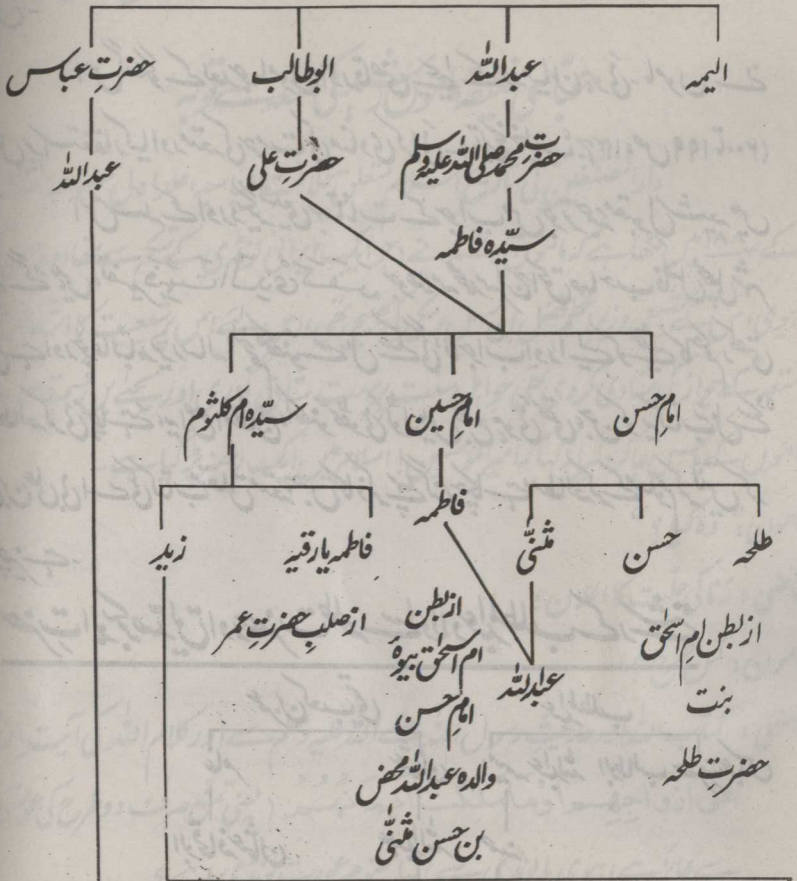 الیمہ عبداللہ ابوطالب حضرتِ عباس
حضرتِ محمد صلی اللہ علیہ وسلم حضرتِ علی عبداللہ
سیّدہ فاطمہ
امامِ حسن امامِ حسین سیّدہ ام کلثوم
فاطمہ
طلحہ حسن مثنیٰ فاطمہ یا رقیہ زید
از بطن امِ اسحٰق
بنت
حضرتِ طلحہ
عبداللہ
از بطن
ام اسحٰق بیوۂ
امامِ حسن
والدہ عبداللہ محض
بن حسن مثنیٰ
از صلبِ حضرتِ عمر